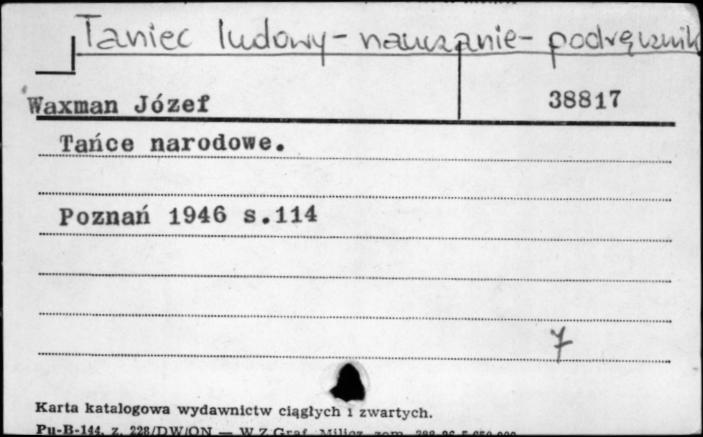 Taniec ludowy - nauczanie - podręcznik
Waxman Józef 38817
Tańce narodowe.
Poznań 1946 s.114
7
Karta katalogowa wydawnictw ciągłych i zwartych.
Pu-B-144, z. 228/DW/ON — W Z Graf. Milicz, zam.